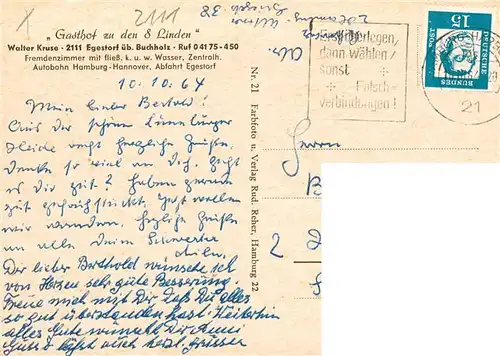 2111
„Gasthof zu den 8 Linden"
Walter Kruse · 2111 Egestorf üb. Buchholz · Ruf 04175-450
Fremdenzimmer mit fließ. k. u. w. Wasser, Zentralh.
Autobahn Hamburg-Hannover, Abfahrt Egestorf
10.10.64
Mein lieber Bertold!
Aus der schönen Lüneburger
Heide recht herzliche Grüße.
Denke so viel an Dich. Geht
es Dir gut? Haben gerade
gut gefrühstückt. Jetzt wollen
wir wandern. Herzliche Grüße
an alle Deine Schwester
Der lieber Berthold wünsche ich
von Herzen sehr gute Besserung.
Freue mich mit Dir, daß Du alles
so gut überstanden hast. Weiterhin
alles Gute wünscht Dir
läßt auch herzl. grüssen
Nr. 21 Farbfoto u. Verlag Rud. Reher, Hamburg 22
Erst überlegen,
dann wählen
sonst
Falsch-
verbindungen!
15
DEUTSCHE
BUNDES
21
Herrn
B
2